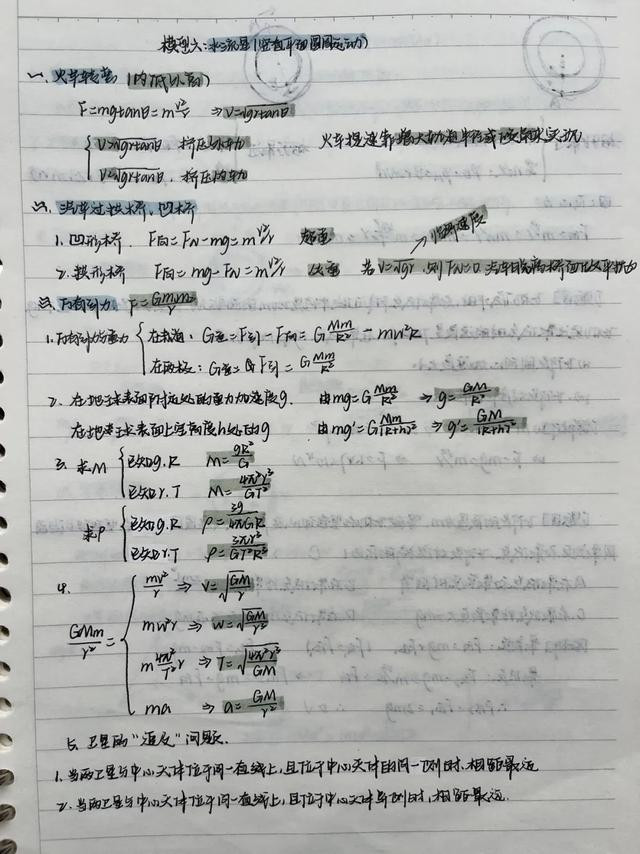 模型六：水流星(竖直平面圆周运动)
一、火车转弯 (内低外高)
F=mgtanθ=m v²/r ⇒ v=√grtanθ
v>√grtanθ 挤压外轨
火车提速靠增大轨道半径或倾角来实现
v<√grtanθ 挤压内轨
二、汽车过拱桥，凹桥
1. 凹形桥 F向=FN-mg=m v²/r 超重 临界速度
2. 拱形桥 F向=mg-FN=m v²/r 失重 若v=√gr，则FN=0
三、万有引力 F=GMm/r
1. 万有引力与重力
在赤道：G重=F引-F向=G Mm/R² - mw²R
在两极：G重=F引=G Mm/R²
2. 在地球表面附近处的重力加速度g. 由mg=G Mm/R² ⇒ g=GM/R²
在地球表面上空高度h处的g 由mg'=G Mm/(R+h)² ⇒ g'=GM/(R+h)²
3. 求M
已知g.R M=gR²/G
已知r.T M=4π²r³/GT²
求ρ
已知g.R ρ=3g/4πGR
已知r.T ρ=3πr³/GT²R³
4. GMm/r²=
mv²/r ⇒ v=√GM/r
mw²r ⇒ w=√GM/r³
m 4π²/T² r ⇒ T=√4π²r³/GM
ma ⇒ a=GM/r²
5. 卫星的"追及"问题.
1. 当两卫星与中心天体位于同一直线上，且位于中心天体的同一侧时，相距最近
2. 当两卫星与中心天体位于同一直线上，且位于中心天体异侧时，相距最远.